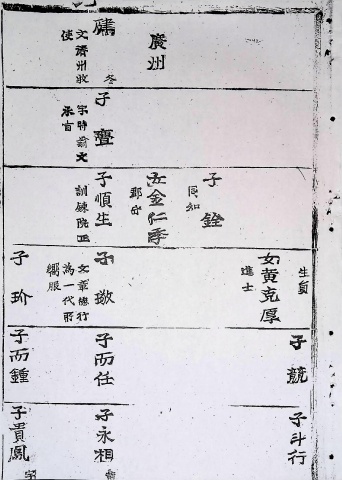 廣州
冬
文濟州牧
使
子
字時翁文
永育
子銓
同知
女金仁季
郡守
子順生
訓鍊院正
生負
女黄克厚
進士
子敬
文章德行
為一代所
嚮服
子玠
子兢
子而任
子而鍾
子斗行
子永相
子貴鳳
字